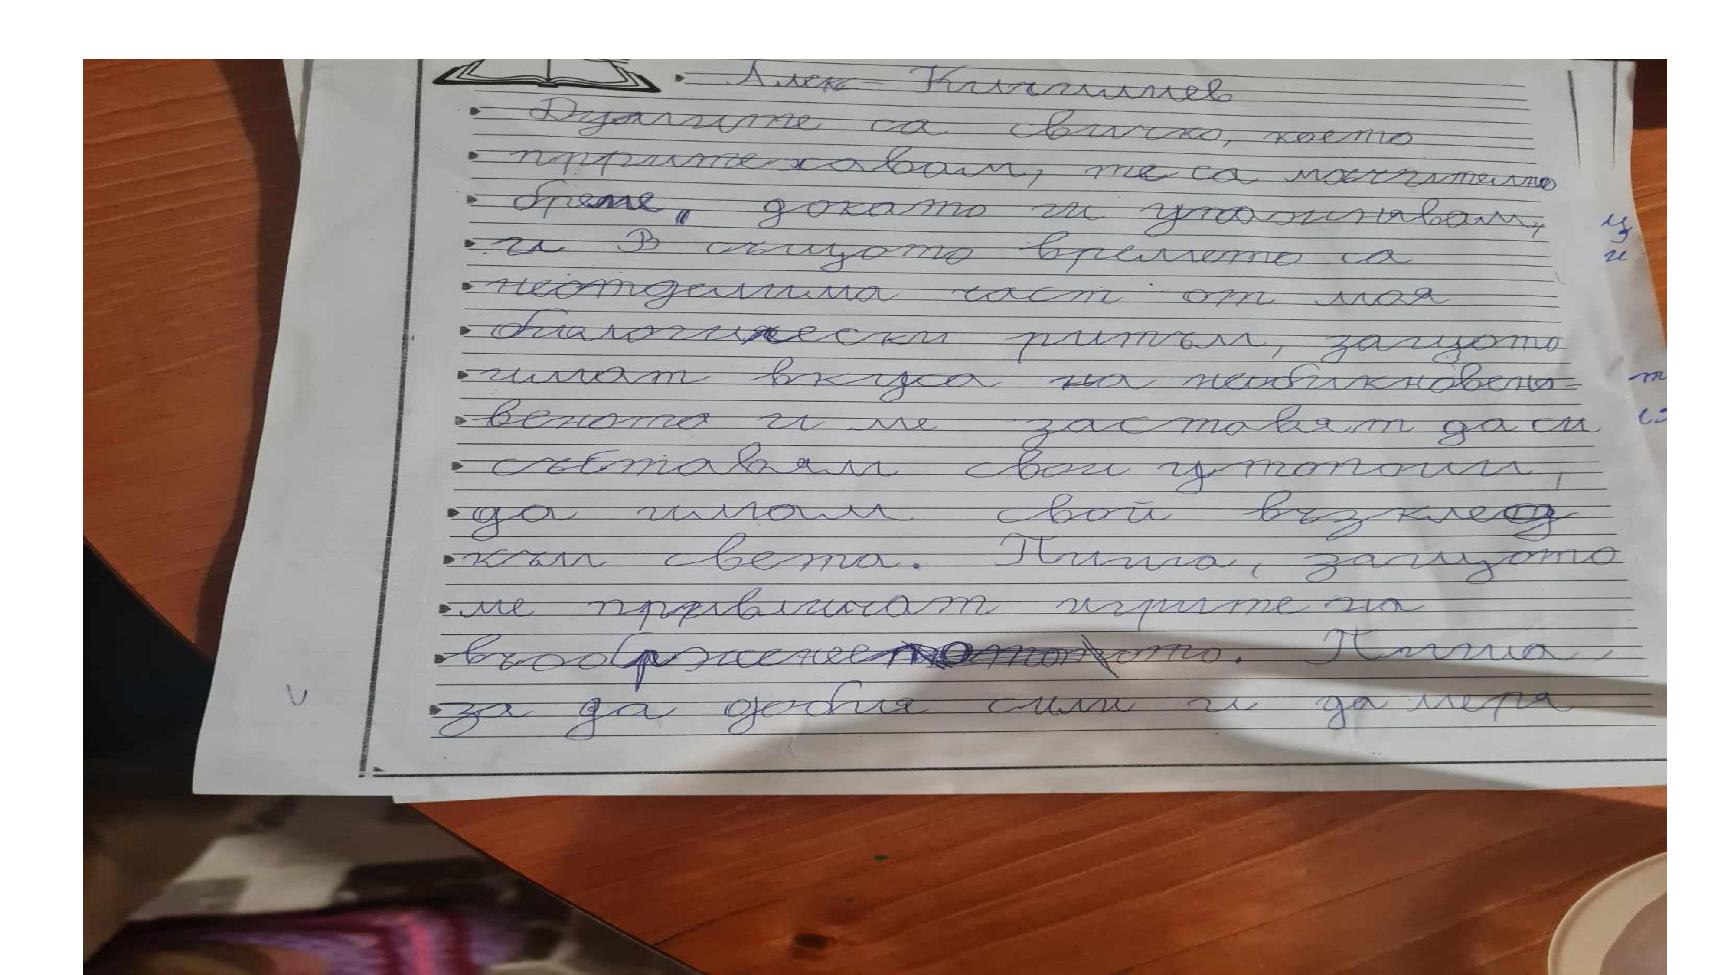 Алек
Думите са свичко, което
притехавам, те са мъчително
бреме, докато ги упазнявам,
и В същото времето са
неотделима част от моя
биалогически ритъм, защото
имат вкуса на необикновено-
веното и ме заставят да си
съставям свои утопоии,
да имам свой възклед
към света. Пиша, защото
ме привличат игрите на
Пиша
за да добия сили и да меря
ц
и
т